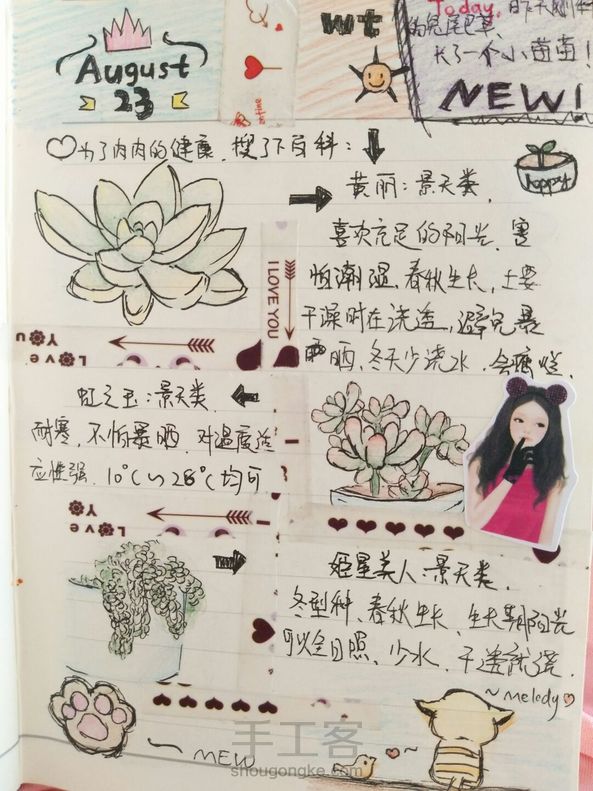 August
23
wt
Today, 昨天刚种
的兔尾巴草,
长了一个小苗苗!
NEW!
为了肉肉的健康,搜了下百科:
happy
黄丽:景天类,
喜欢充足的阳光,害
怕潮湿、春秋生长,土要
干燥时在浇透,避免暴
晒,冬天少浇水,会腐烂.
I LOVE YOU
Love You
虹之玉:景天类,
耐寒,不怕暴晒,对温度适
应性强,10℃~28℃均可
Love You
姬星美人:景天类,
冬型种、春秋生长、生长期阳光
可以全日照、少水,干透就浇.
~melody
MEW
手工客
shougongke.com